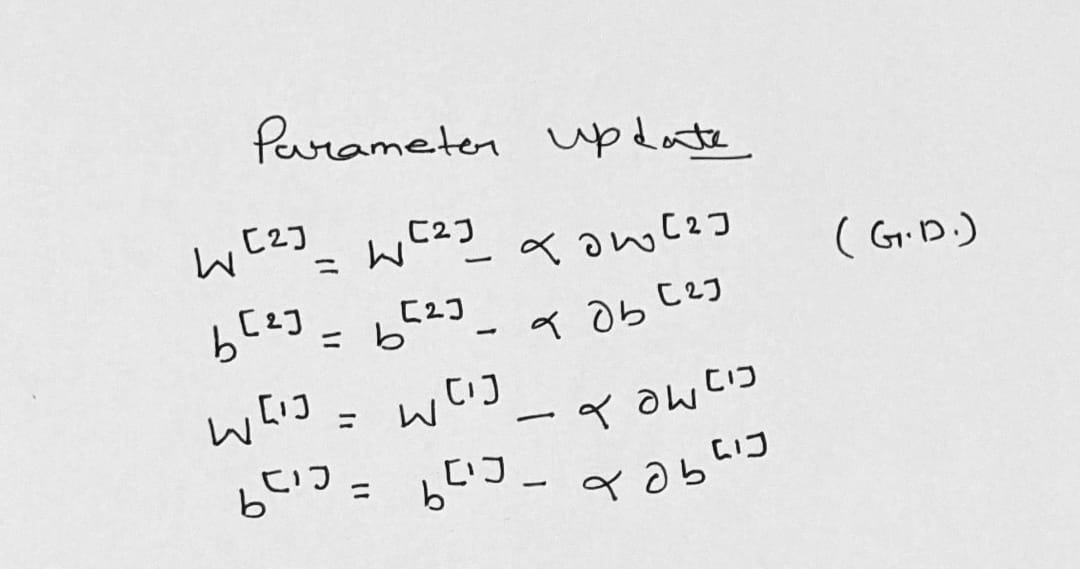 Parameter update
W[2] = W[2] - α ∂W[2] (G.D.)
b[2] = b[2] - α ∂b[2]
W[1] = W[1] - α ∂W[1]
b[1] = b[1] - α ∂b[1]